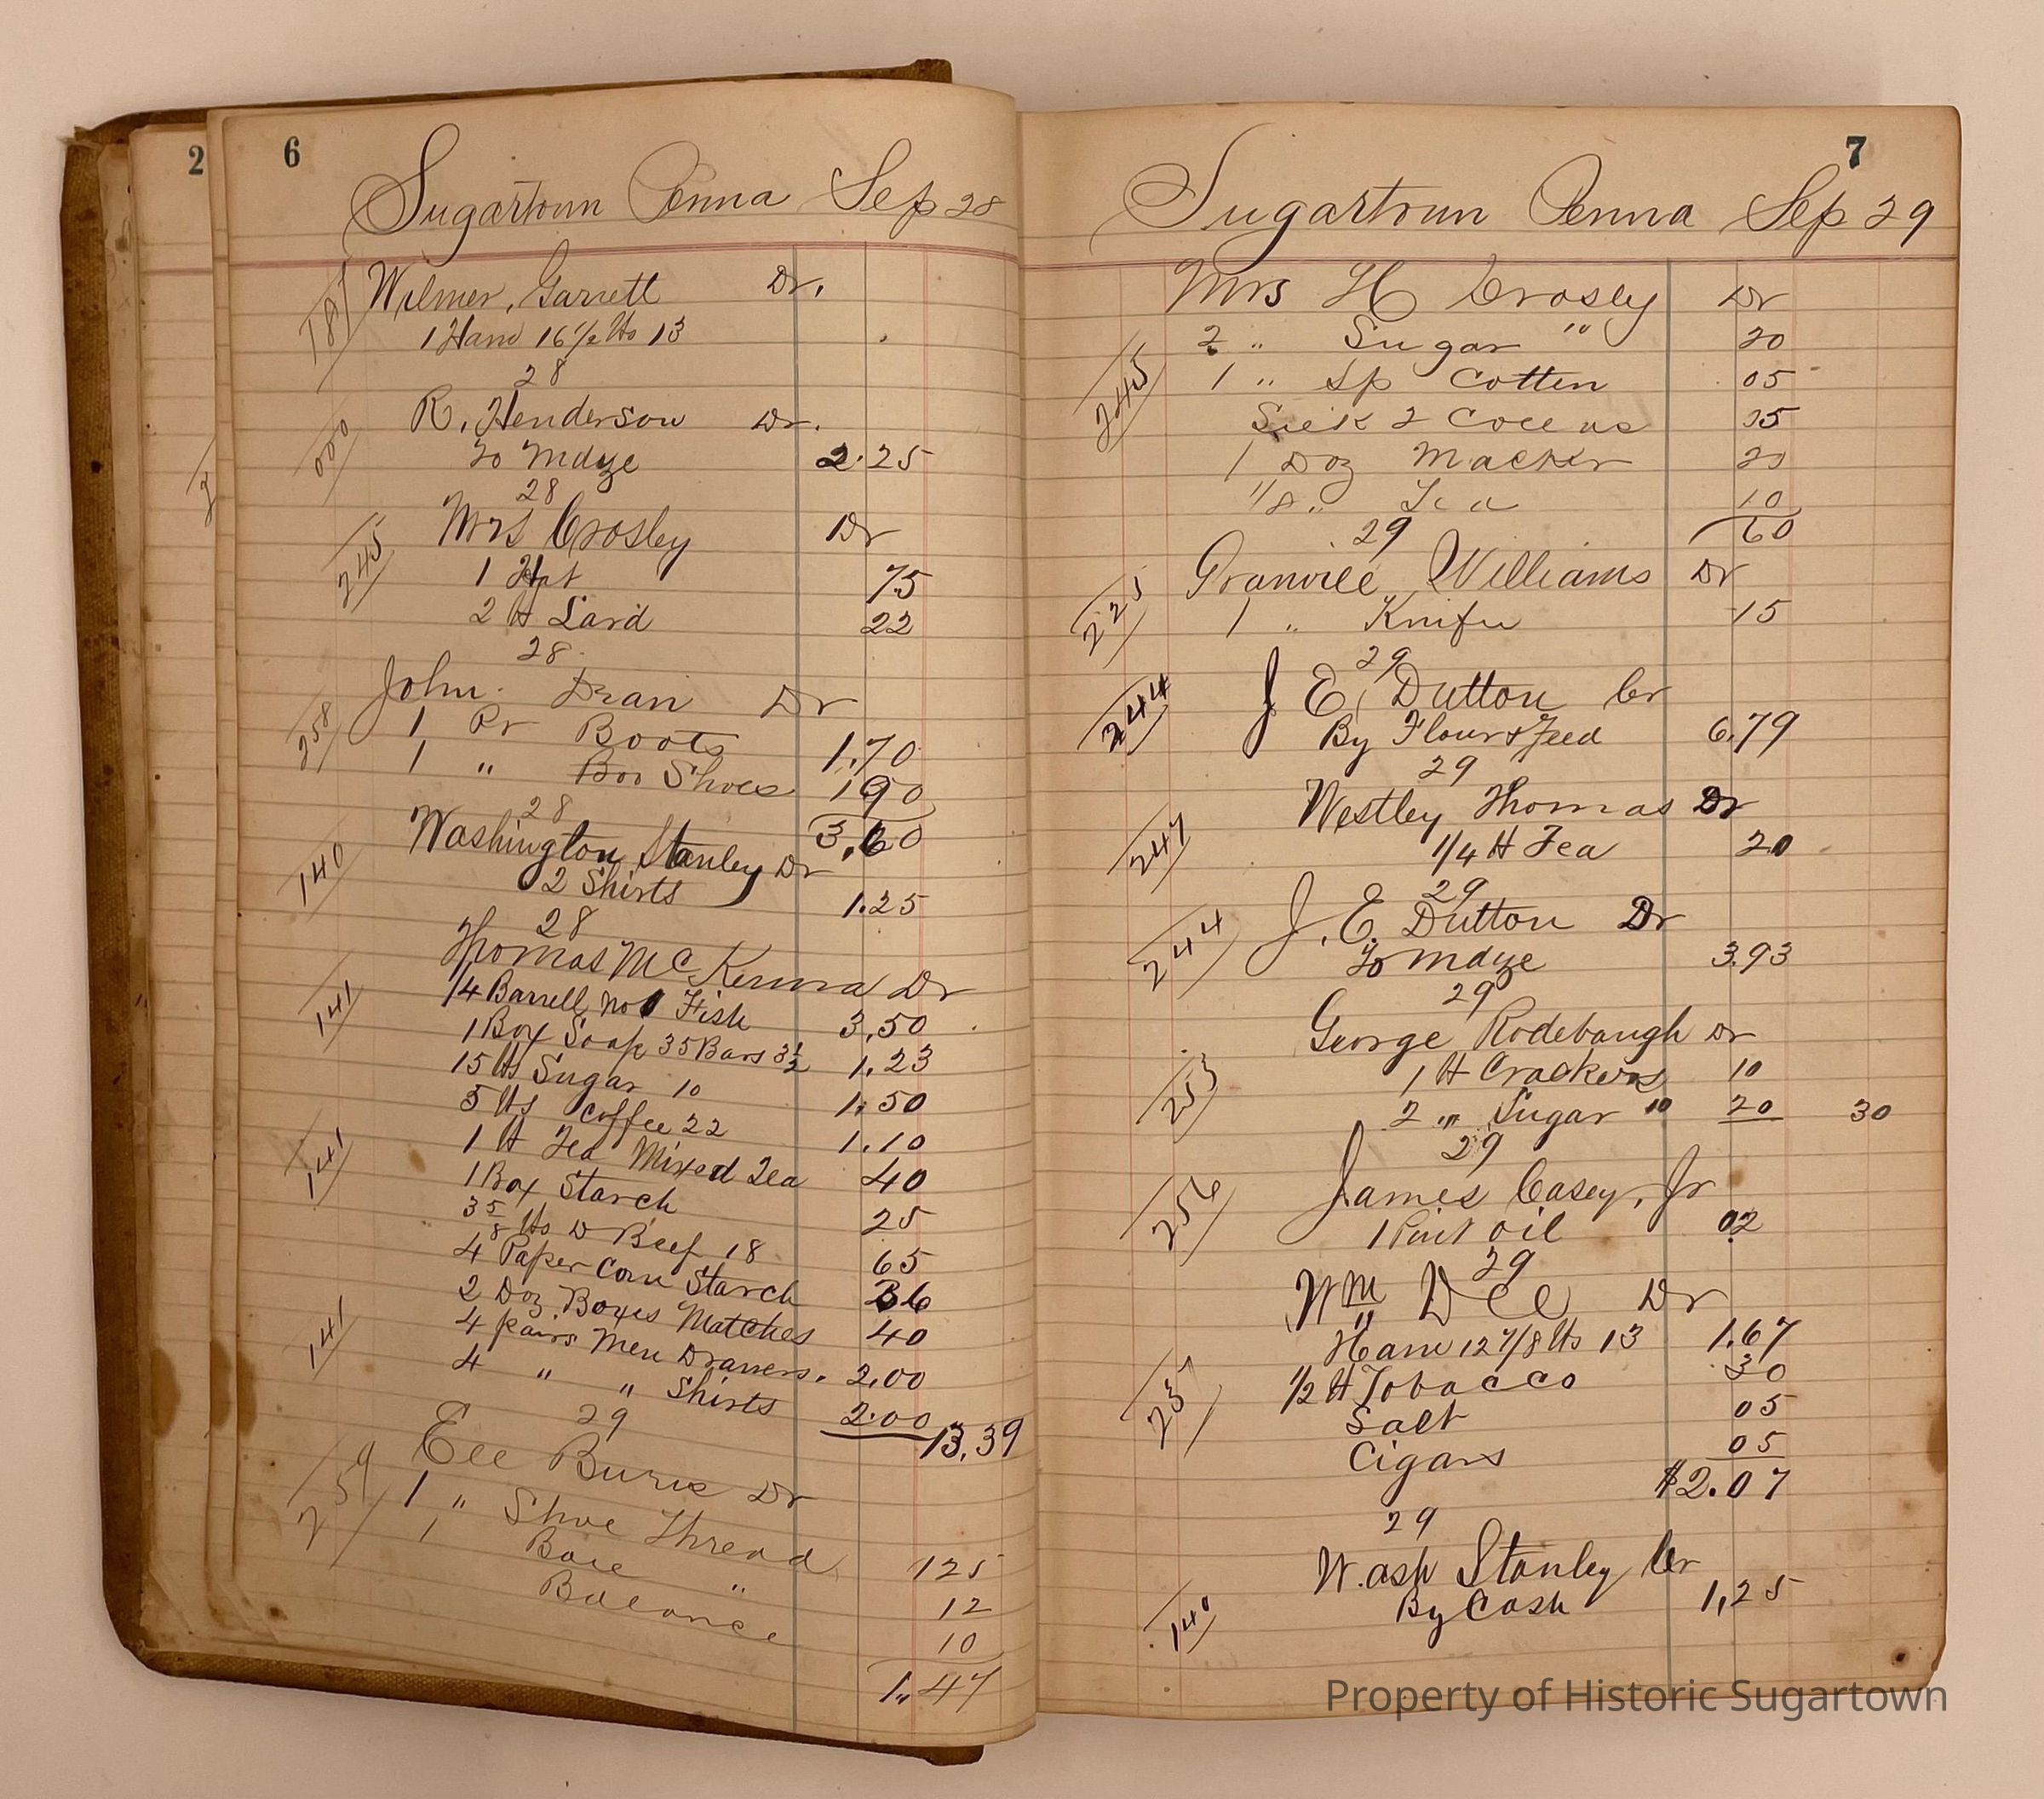 2
6
Sugartown Penna Sep 28
181
Wilmer, Garrett Dr.
1 Ham 16 1/2 lbs 13
28
000
R. Henderson Dr.
To Mdze 2.25
28
245
Mrs Crosley Dr
1 Hat 75
2 lb Lard 22
28
258
John Dran Dr
1 Pr Boots 1.70
1 " Boo Shoes 190
3.60
28
140
Washington Stanley Dr
2 Shirts 1.25
28
Thomas McKenna Dr
141
1/4 Barrell No 1 Fish 3.50
1 Box Soap 35 Bars 3 1/2 1.23
15 lbs Sugar 10 1.50
5 lbs Coffee 22 1.10
141
1 lb Tea Mixed Tea 40
1 Box Starch 25
3 5/8 lbs D Beef 18 65
4 Paper Corn Starch 36
2 Doz Boxes Matches 40
141
4 pairs Men Drawers. 2.00
4 " " Shirts 2.00
13.39
29
259
Ell Burns Dr
1 " Shoe Thread 125
1 " 12
Balance 10
1.47
7
Sugartown Penna Sep 29
Mrs H Crosley Dr
2 " Sugar " 20
245
1 " Sp Cotten 05
1 Doz Macker 20
1/8 " Tea 10
60
29
225
Granville Williams Dr
1 " Knife 15
29
244
J E. Dutton Cr
By Flour & Feed 6.79
29
247
Westley Thomas Dr
1/4 lb Tea 20
29
244
J. E. Dutton Dr
To Mdze 3.93
29
253
George Rodebaugh Dr
1 lb Crackers 10
2 " Sugar 10 20 30
29
256
James Casey, Jr
1 Pint oil 02
29
Wm Dr
Ham 12 7/8 lbs 13 1.67
235
1/2 lb Tobacco 30
Salt 05
Cigars 05
$2.07
29
140
Wash Stanley Cr
By Cash 1.25
Property of Historic Sugartown